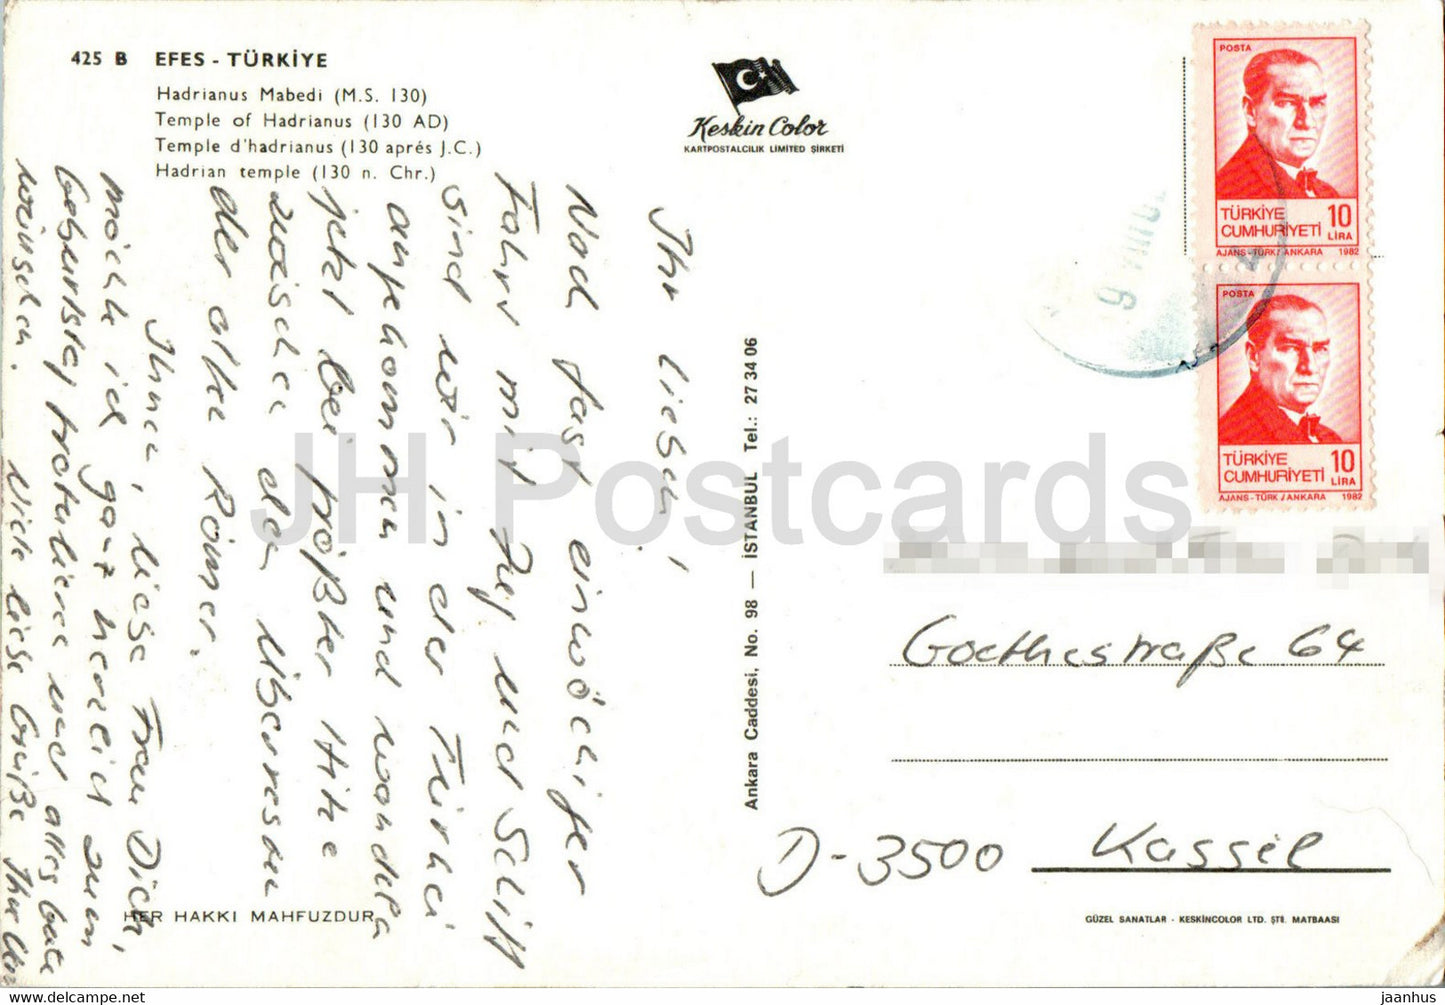 425 B EFES - TÜRKİYE
Hadrianus Mabedi (M.S. 130)
Temple of Hadrianus (130 AD)
Temple d'hadrianus (130 aprés J.C.)
Hadrian temple (130 n. Chr.)
Keskin Color
KARTPOSTALCILIK LIMITED ŞİRKETİ
Ihr Lieben!
Nach fast einwöchiger
Fahrt mit Zug und Schiff
sind wir in der Türkei
angekommen und wandern
jetzt bei größter Hitze
zwischen den Überresten
der alten Römer.
Ihnen, liebe Frau Dich,
möchte ich ganz herzlich zum
Geburtstag gratulieren und alles Gute
wünschen. Viele liebe Grüße Ihre
HER HAKKI MAHFUZDUR
Ankara Caddesi, No. 98 — İSTANBUL Tel.: 27 34 06
POSTA
TÜRKİYE 10
CUMHURİYETİ LİRA
AJANS-TÜRK/ANKARA 1982
POSTA
TÜRKİYE 10
CUMHURİYETİ LİRA
AJANS-TÜRK/ANKARA 1982
Goethestraße 64
D-3500 Kassel
GÜZEL SANATLAR - KESKİNCOLOR LTD. ŞTİ. MATBAASI
JH Postcards
https://www.delcampe.net
jaanhus